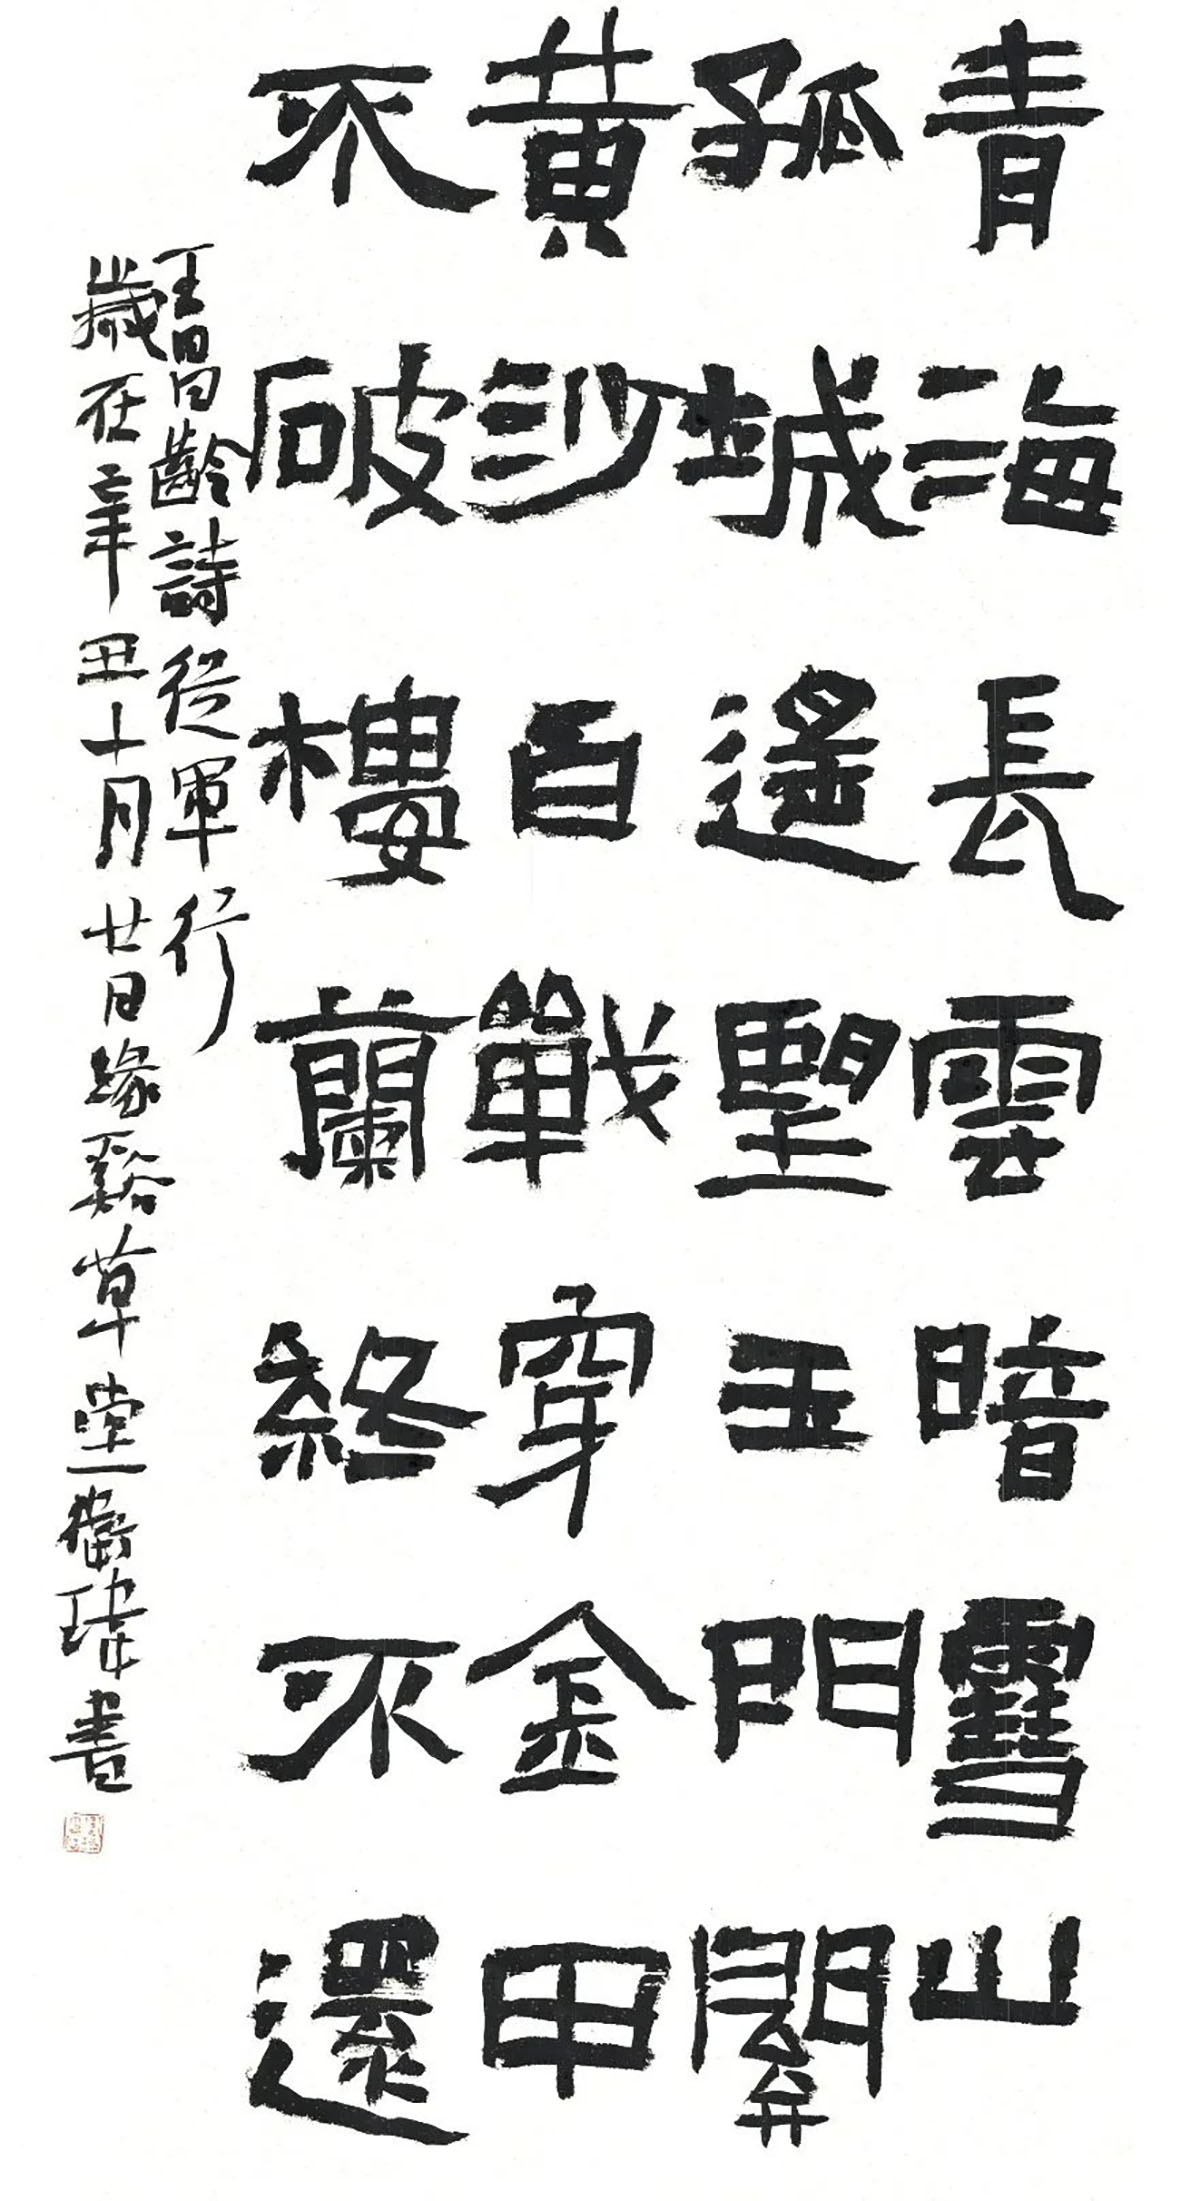 青海長雲暗雪山
孤城遙望玉門關
黄沙百戰穿金甲
不破樓蘭終不還
王昌齡詩從軍行
歲在辛丑十月廿日緣谿草堂衛瑋書